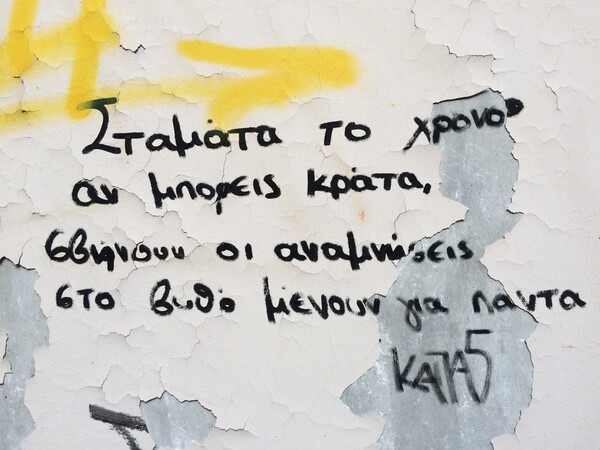 Σταμάτα το χρονο
αν μπορεις κράτα,
σβηνουν οι αναμνήσεις
στο βυθό μένουν για παντα